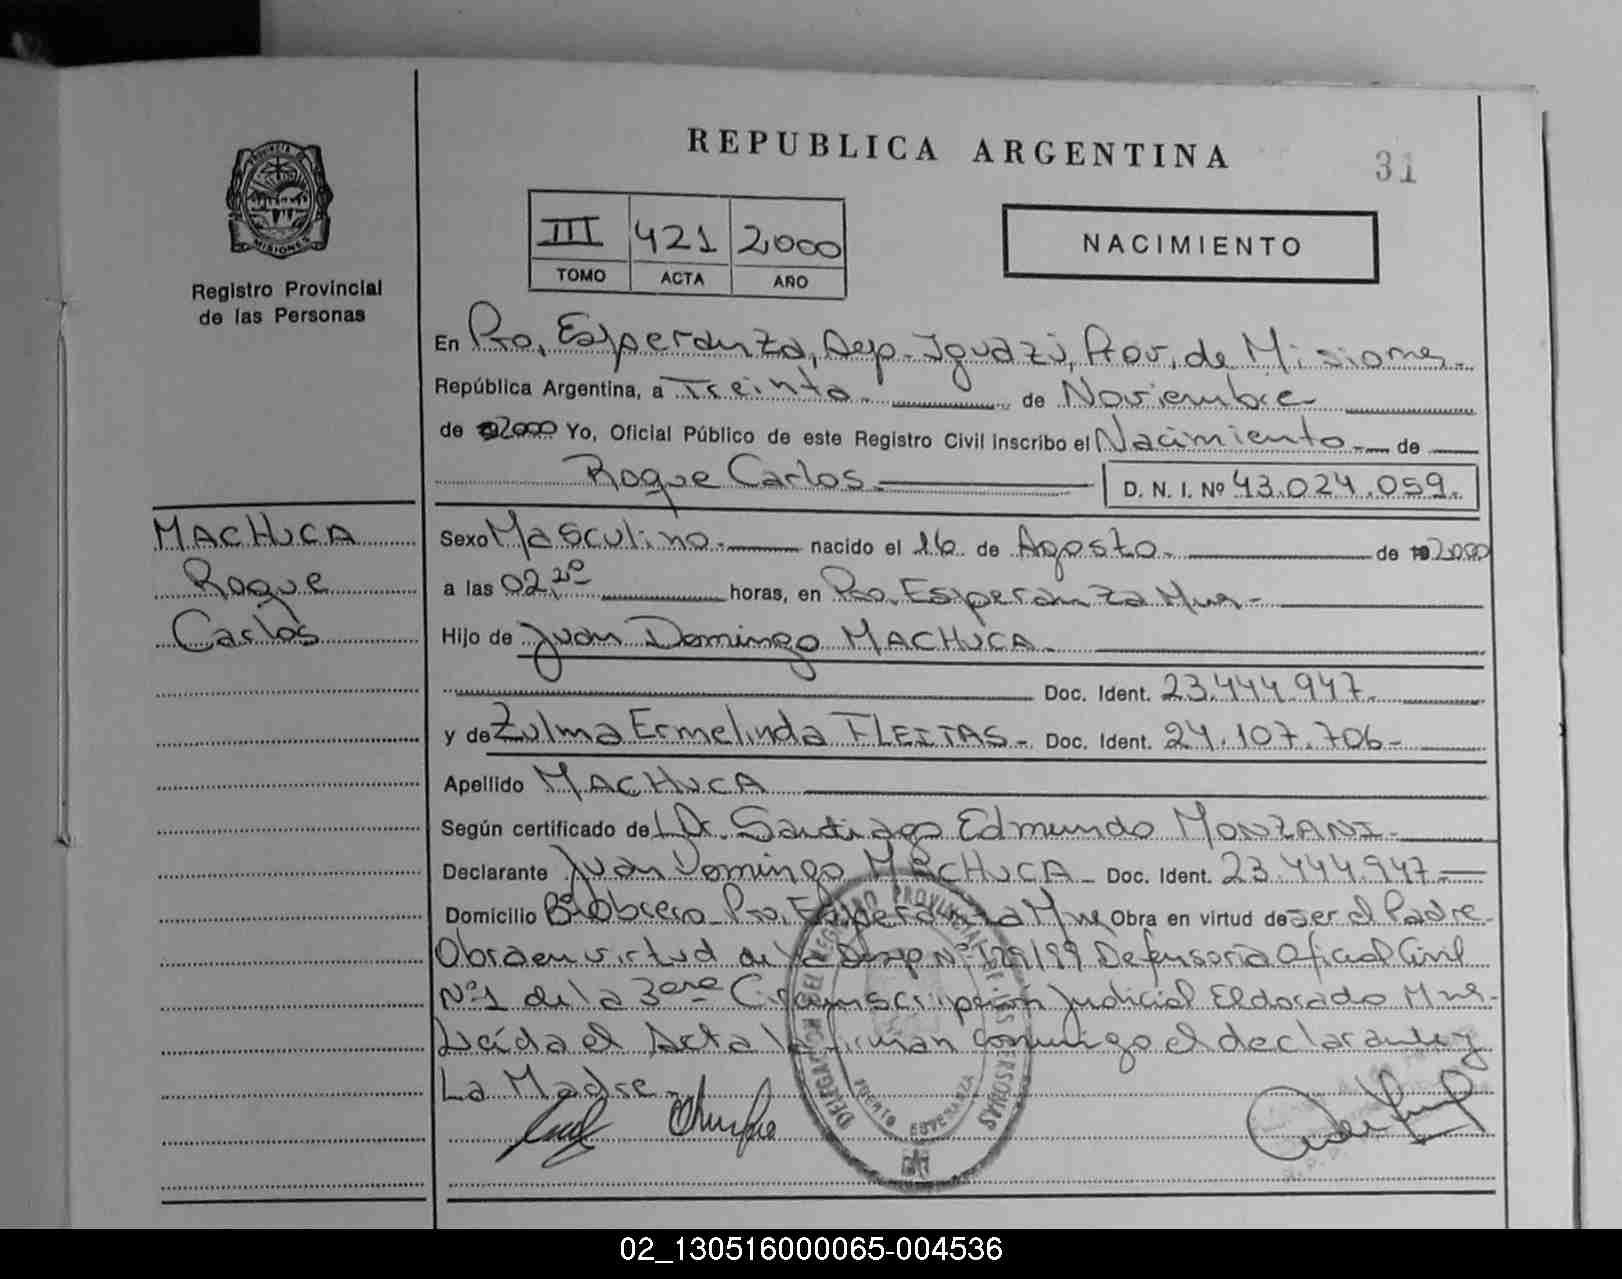 REPUBLICA ARGENTINA
31
PROVINCIA DE
MISIONES
Registro Provincial
de las Personas
III 421 2,000
TOMO ACTA AÑO
NACIMIENTO
En Pto. Esperanza, Dep. Iguazú, Prov. de Misiones.
República Argentina, a Treinta de Noviembre
de 2000 Yo, Oficial Público de este Registro Civil inscribo el Nacimiento de
Roque Carlos. D. N. I. Nº 43.024.059.
MACHUCA
Roque
Carlos
Sexo Masculino. nacido el 16 de Agosto. de 2000
a las 02,20 horas, en Pto. Esperanza Mnes-
Hijo de Juan Domingo MACHUCA.
Doc. Ident. 23.444.947.
y de Zulma Ermelinda FLEITAS- Doc. Ident. 24.107.706-
Apellido MACHUCA
Según certificado de Dr. Santiago Edmundo MONZANI-
Declarante Juan Domingo MACHUCA- Doc. Ident. 23.444.947.-
Domicilio Bº Obrero Pto. Esperanza Mnes Obra en virtud de ser el Padre-
Obra en virtud de la Disp Nº 129/99 Defensoría Oficial Civil
Nº 1 de la 3era Circunscripción Judicial Eldorado Mnes-
Leída el Acta la firman conmigo el declarante y
La Madre-
DELEGACION DEL REGISTRO PROVINCIAL DE LAS PERSONAS
PUERTO ESPERANZA
02_130516000065-004536